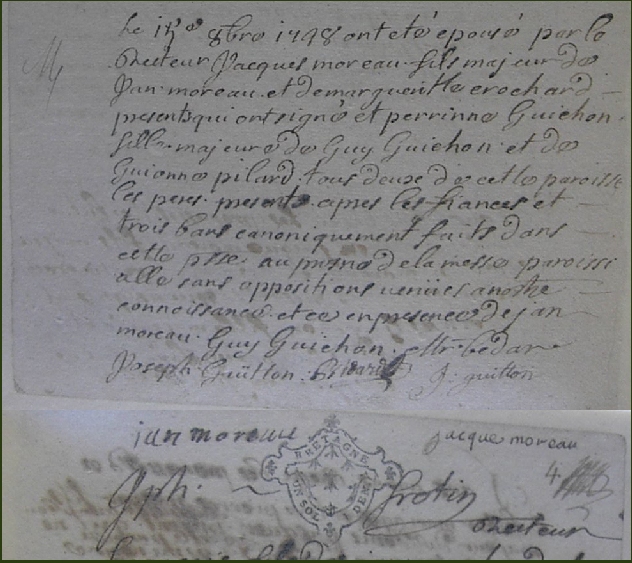 Le 15e 8bre 1748 ont eté epousé par le
Recteur Jacques moreau fils majeur de
Jan moreau et de margueritte crochard
presents qui ont signé et perrinne Guichon
fille majeure de Guy Guichon et de
Guionne pilard tous deux de cette paroisse
les peres presents apres les fiances et
trois bans canoniquement faits dans
cette psse au prosne de la messe paroissi
alle sans oppositions venües a nostre
connoissance et ce en presence de jan
moreau Guy Guichon
Joseph Guitton J. guitton
ian moreau jacque moreau
BRETAGNE
UN SOL DEMI
Jph. Frotin
Recteur